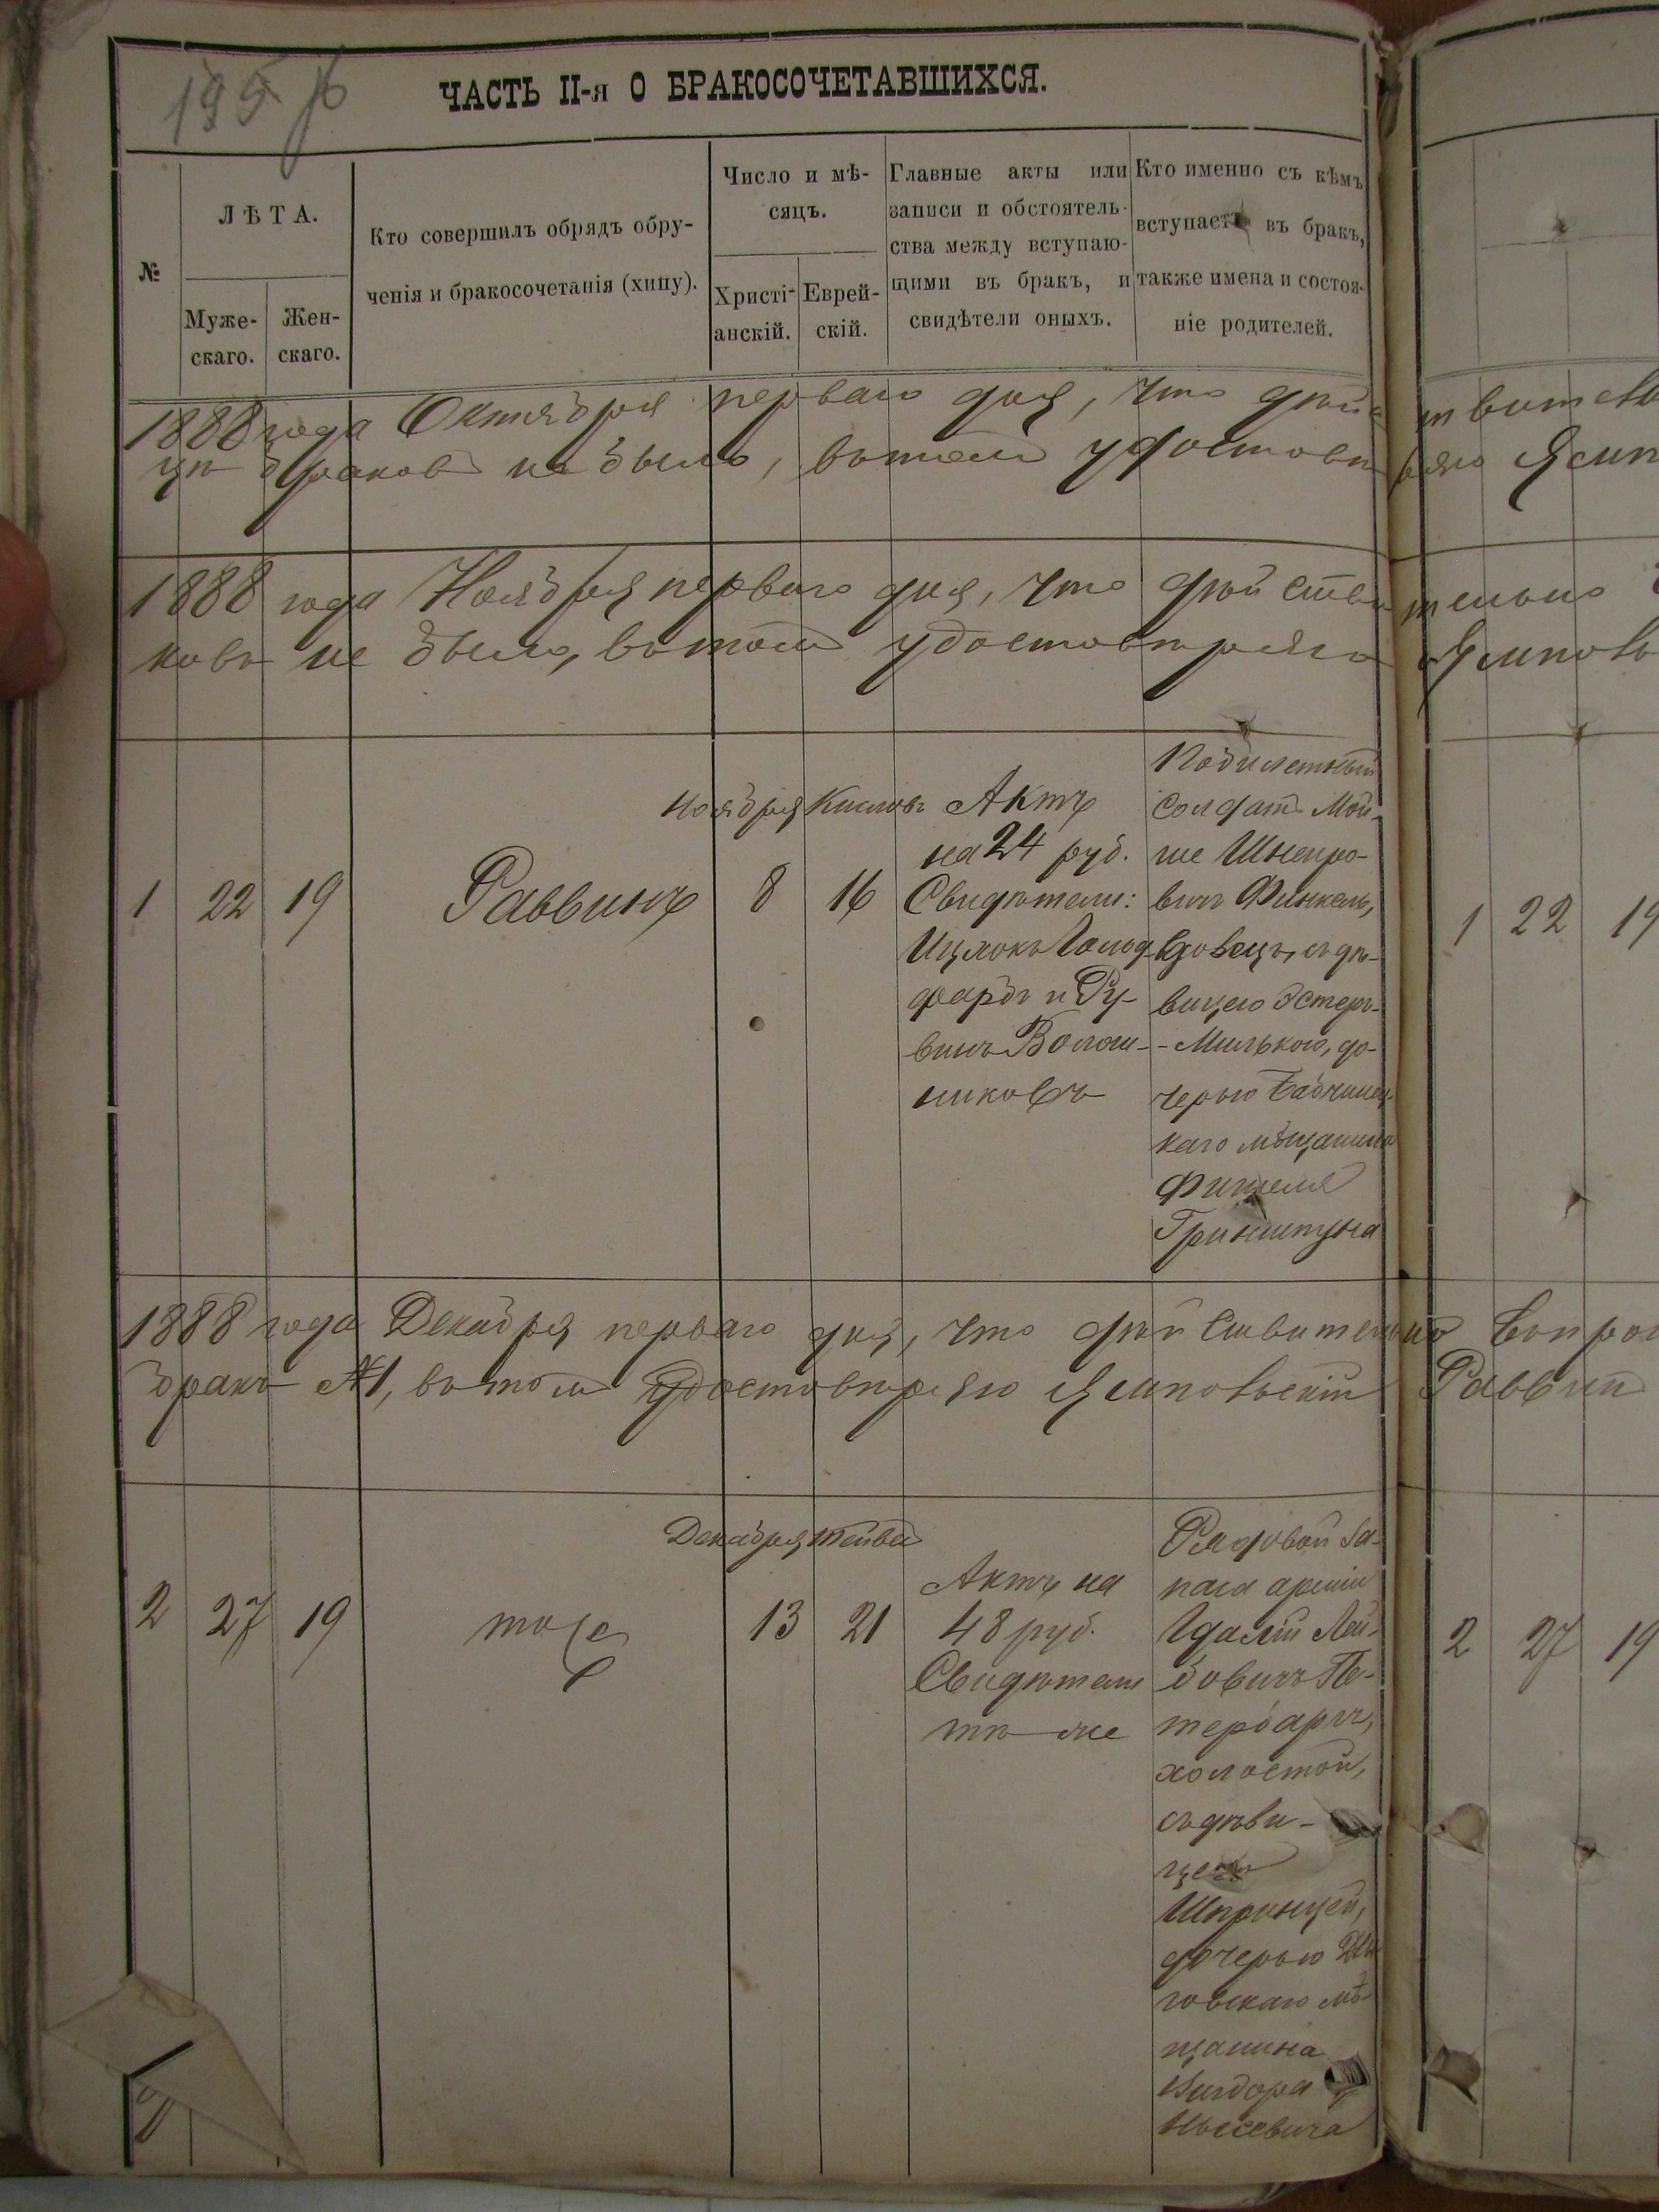 195
ЧАСТЬ II-я О БРАКОСОЧЕТАВШИХСЯ.
№
ЛѢТА.
Муже-
скаго.
Жен-
скаго.
Кто совершилъ обрядъ обру-
ченія и бракосочетанія (хипу).
Число и мѣ-
сяцъ.
Христі-
анскій.
Еврей-
скій.
Главные акты или
записи и обстоятель-
ства между вступаю-
щими въ бракъ, и
свидѣтели оныхъ.
Кто именно съ кѣмъ
вступаетъ въ бракъ,
также имена и состоя-
ніе родителей.
1888 года Октября перваго дня, что дѣйствитель
браковъ не было, въ томъ удостовѣряю Ямп
1888 года Ноября перваго дня, что дѣйствительно
ковъ не было, въ томъ удостовѣряю Ямполь
1 22 19
Раввинъ
Ноября
8
Кислевъ
16
Актъ
на 24 руб.
Свидѣтели:
Ицхокъ Гольд-
фарбъ и Ру-
винъ Волош-
никовъ
Побилетный
солдатъ Мой-
ше Шнеиро-
вичъ Финкель,
вдовецъ, съ дѣ-
вицею Эстеръ-
-Милькою, до-
черью Бабчинец-
каго мѣщанина
Фишеля
Гринштуна
1 22 19
1888 года Декабря перваго дня, что дѣйствительно
бракъ №1, въ томъ удостовѣряю Ямпольскій Раввинъ
2 27 19
тоже
Декабря
13
Тейвесъ
21
Актъ на
48 руб.
Свидѣтели
тѣ же
Рядовой за-
паса арміи
Гдалій Лей-
бовичъ Пе-
тербаргъ,
холостой,
съ дѣви-
цею
Шпринцей,
дочерью
говскаго мѣ-
щанина
Вигдора
2 27 19